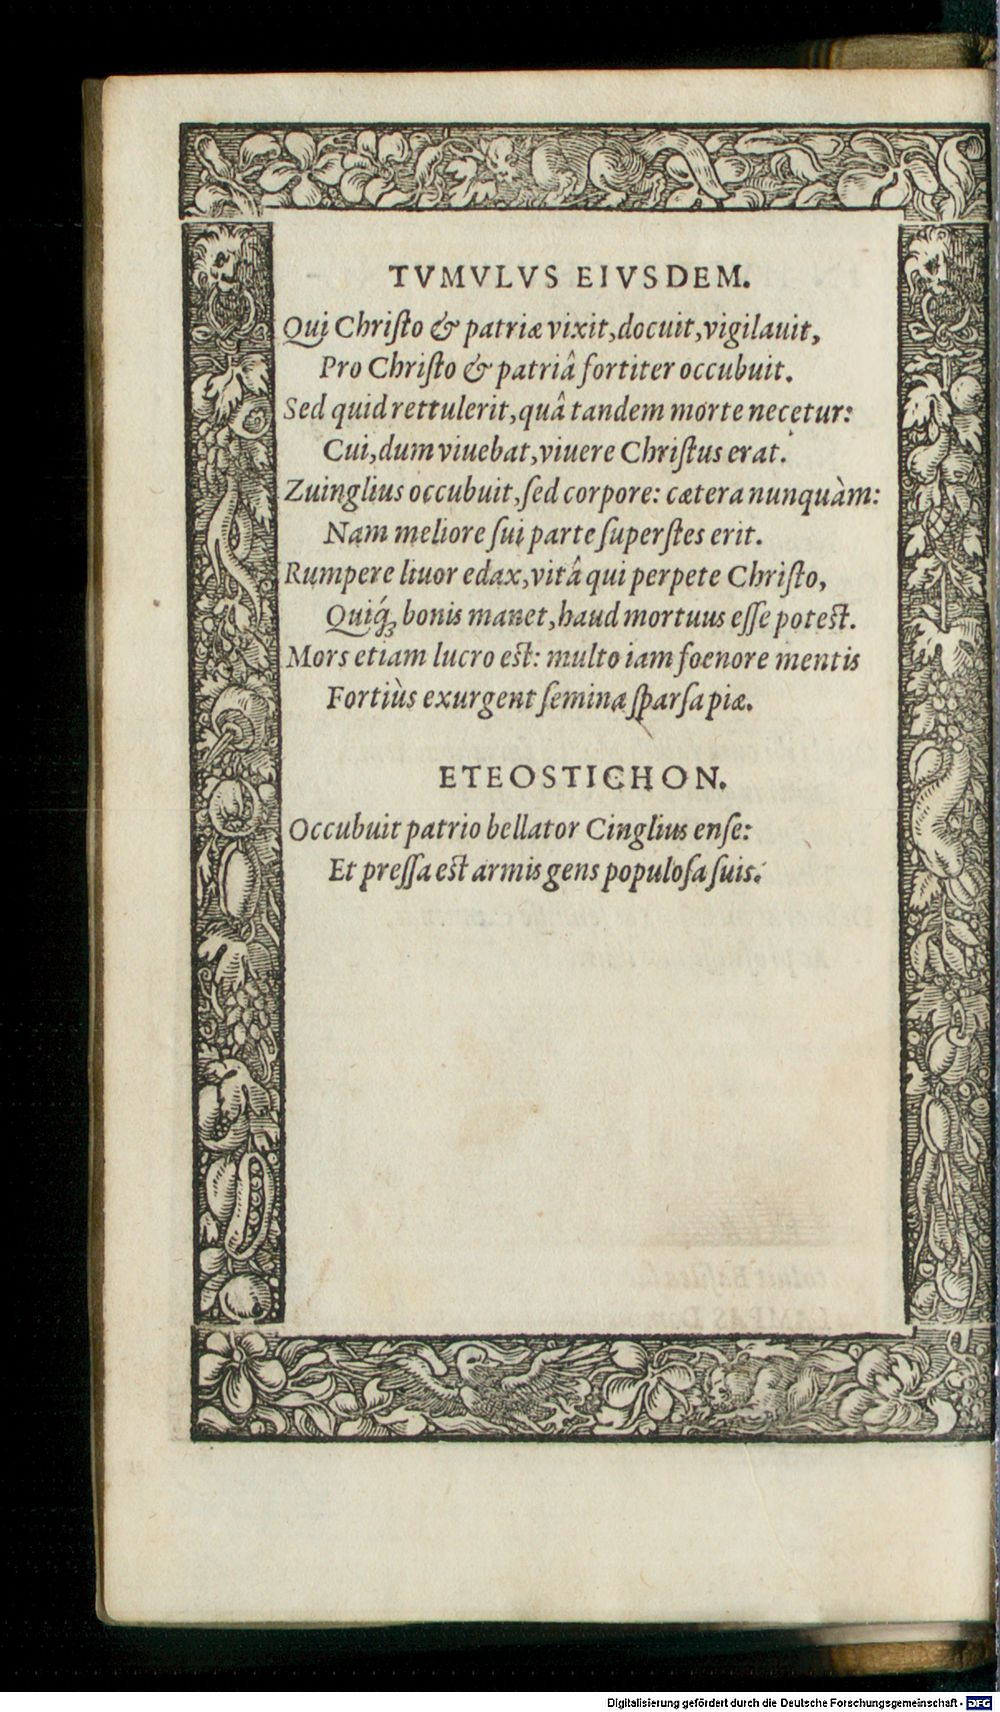 TVMVLVS EIVSDEM.
Qui Chriſto & patriæ vixit, docuit, vigilauit,
Pro Chriſto & patriâ fortiter occubuit.
Sed quid rettulerit, quâ tandem morte necetur:
Cui, dum viuebat, viuere Chriſtus erat.
Zuinglius occubuit, ſed corpore: cætera nunquàm:
Nam meliore ſui parte ſuperſtes erit.
Rumpere liuor edax, vitâ qui perpete Chriſto,
Quiq́ꝫ bonis manet, haud mortuus eſſe poteſt.
Mors etiam lucro eſt: multo iam foenore mentis
Fortiùs exurgent ſemina ſparſa piæ.
ETEOSTICHON.
Occubuit patrio bellator Cinglius enſe:
Et preſſa eſt armis gens populoſa ſuis.
Digitalisierung gefördert durch die Deutsche Forschungsgemeinschaft - DFG